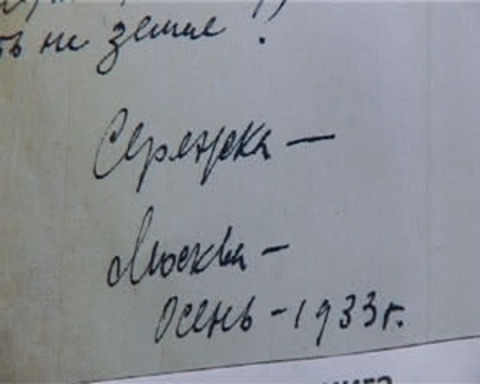 ть не земле!
Сережка —
Москва —
осень - 1933 г.